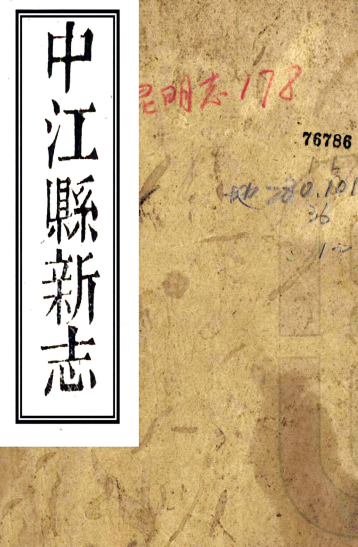 中江縣新志
昆明志178
76786
地280.101
36
1~